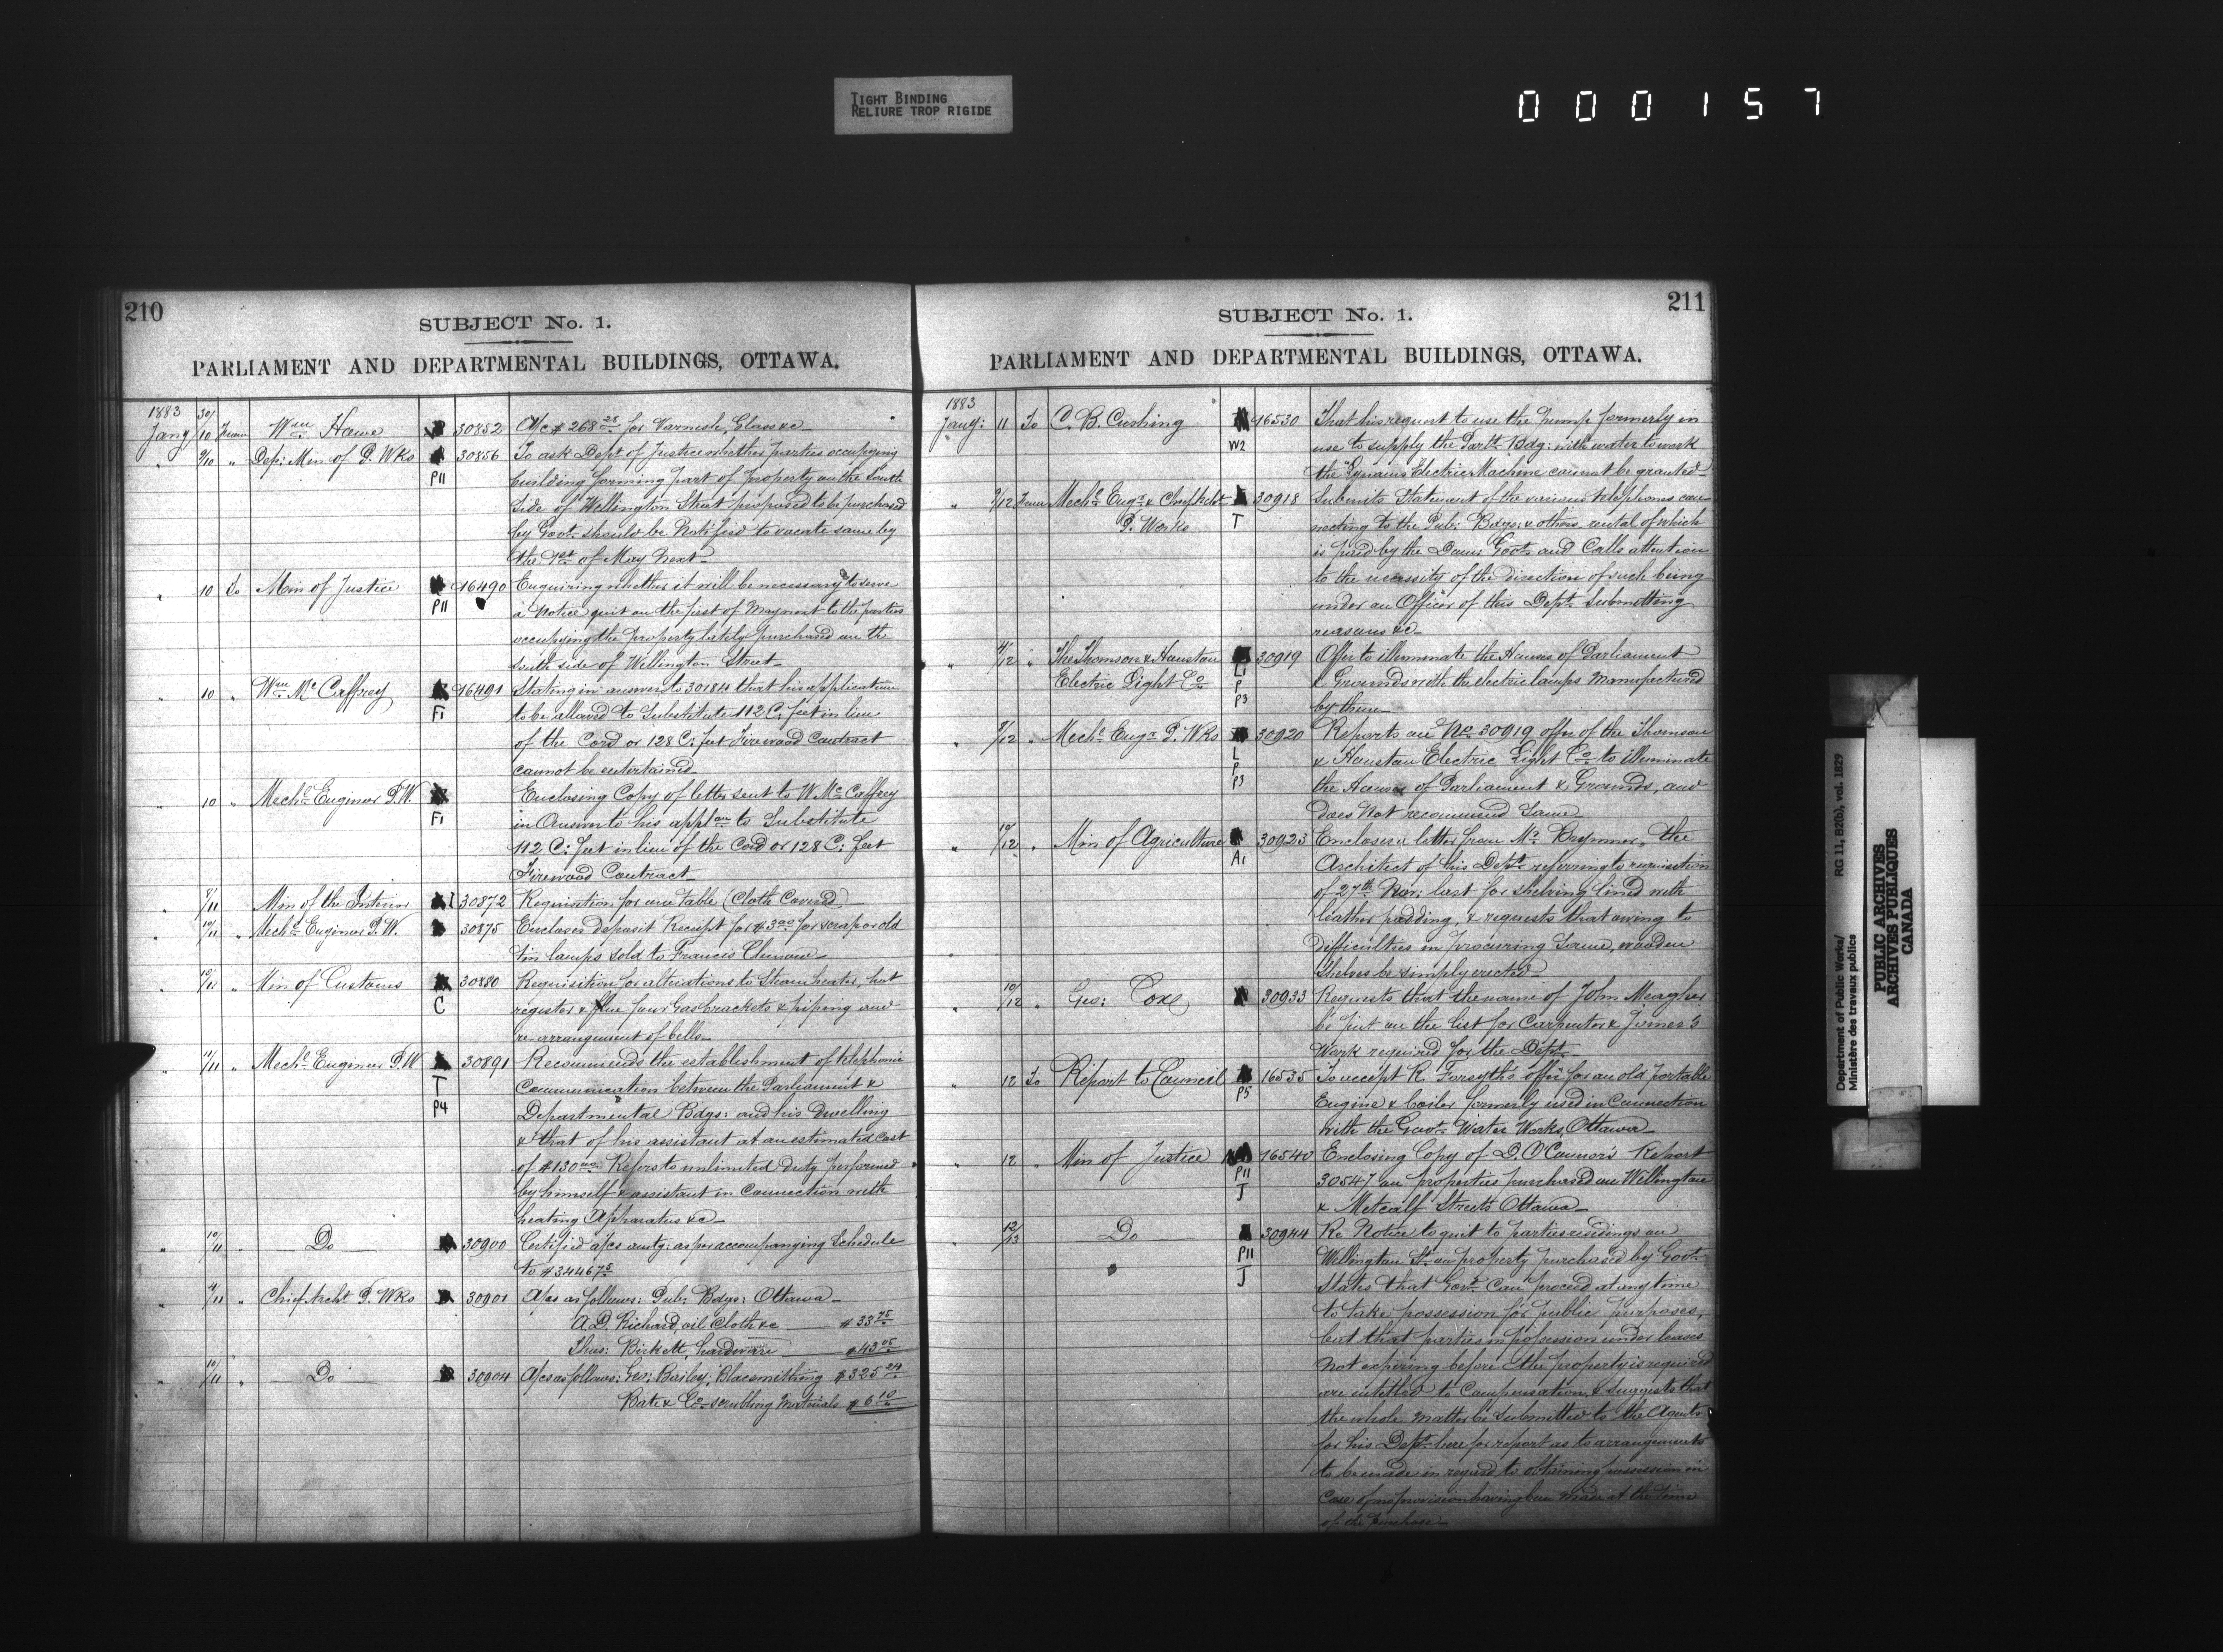 TIGHT BINDING
RELIURE TROP RIGIDE
000157
210
SUBJECT No. 1.
PARLIAMENT AND DEPARTMENTAL BUILDINGS, OTTAWA.
1883
Jany 30/10 From Wm Howe 30852 A/c $268 28 for Varnish, Glass &c
" 9/10 " Dep: Min of P. Wks 30856 To ask Dept of Justice whether parties occupying
P11 building forming part of property on the South
Side of Wellington Street proposed to be purchased
by Govt. should be Notified to vacate same by
the 1st of May Next
" 10 To Min of Justice 16490 Enquiring whether it will be necessary to serve
P11 a Notice quit on the first of May next to the parties
occupying the property lately purchased on the
South side of Wellington Street
" 10 " Wm McCaffrey 16491 Stating in answer to 30184 that his application
F1 to be allowed to Substitute 112 C: feet in lieu
of the Cord or 128 C: feet Firewood Contract
cannot be entertained
" 10 " Mechl Engineer P.W.
Enclosing Copy of letter sent to W. McCaffrey
F1 in Answer to his appln to Substitute
112 C: feet in lieu of the Cord or 128 C: feet
Firewood Contract
" 9/11 Min of the Interior I 30872 Requisition for one Table (Cloth Covered)
" 10/11 " Mechl Engineer P.W. 30875 Encloses deposit Receipt for $3 00 for scrap or old
tin lamps sold to Francis
" 10/11 " Min of Customs 30880 Requisition for alterations to Steam heater, hot
C register & flue four Gas brackets & piping and
re-arrangement of bells
" 11/11 " Mechl Engineer P.W 30891 Recommends the establishment of telephonic
T Communication between the Parliament &
P4 Departmental Bdgs: and his Dwelling
& that of his assistant at an estimated cost
of $130 00 Refers to unlimited duty performed
by himself & assistant in Connection with
heating Apparatus &c
" 10/11 " Do 30900 Certified a/cs amtg: as per accompanying Schedule
to $3446 75
" 4/11 " Chief Archt P. Wks 30901 A/cs as follows: Pub: Bdgs: Ottawa
A.D. Richard, oil Cloth &c $33 75
Thos: Birkett, hardware $43 05
" 10/11 " Do 30904 A/cs as follows: Geo: Bailey: Blacsmithing $325 24
Bate & Co scrubbing Materials $6 10
211
SUBJECT No. 1.
PARLIAMENT AND DEPARTMENTAL BUILDINGS, OTTAWA.
1883
Jany: 11 To C. B. Cushing 16530 That his request to use the pump formerly in
W2 use to supply the Parlt. Bdg: with water to work
the Electric Machine cannot be granted
" 12 From Mechl Engr & Chief Archt 30918 Submits Statement of the various telephones con-
P. Works T necting to the Pub: Bdgs: & others rental of which
is paid by the Dom: Govt. and Calls attention
to the necessity of the direction of such being
under an Officer of this Dept. Submitting
reasons &c
" 4/12 " The Thomson & Houston 30919 Offer to illuminate the Houses of Parliament
Electric Light Co L1 P P3 & Grounds with the electric lamps Manufactured
by them
" 8/12 " Mechl Engr P. Wks 30920 Reports on No 30919 offer of the Thomson
L & Houston Electric Light Co to illuminate
P P3 the Houses of Parliament & Grounds, and
does Not recommend Same
" 10/12 " Min of Agriculture 30923 Encloses a letter from Mr Brymner, the
A1 Architect of his Dept. referring to requisition
of 27th Nov: last for shelving lined with
leather padding, & requests that owing to
difficulties in procuring Same, wooden
Shelves be simply erected
" 10/12 " Geo: Cox 30933 Requests that the name of John Meagher
be put on the list for Carpenter & Joiner's
Work required for the Dept.
" 12 To Report to Council 16535 To accept R. Forsyth's offer for an old portable
P5 Engine & boiler formerly used in Connection
with the Govt. Water Works, Ottawa
" 12 " Min of Justice 16540 Enclosing Copy of D. O'Connor's Report
P11 30547 on properties purchased on Wellington
J & Metcalf Streets Ottawa
" 12/13 Do 30944 Re Notice to quit to parties residings on
P11 Wellington St. on property purchased by Govt.
J States that Govt. Can proceed at any time
to take possession for public purposes,
but that parties in possession under leases
Not expiring before the property is required
are entitled to Compensation, & Suggests that
the whole Matter be Submitted to the Agents
for his Dept. here for report as to arrangements
to be made in regard to obtaining possession in
Case of no provision having been made at the time
of the purchase
Department of Public Works/
Ministère des travaux publics
RG 11, B2(b), vol. 1829
PUBLIC ARCHIVES
ARCHIVES PUBLIQUES
CANADA